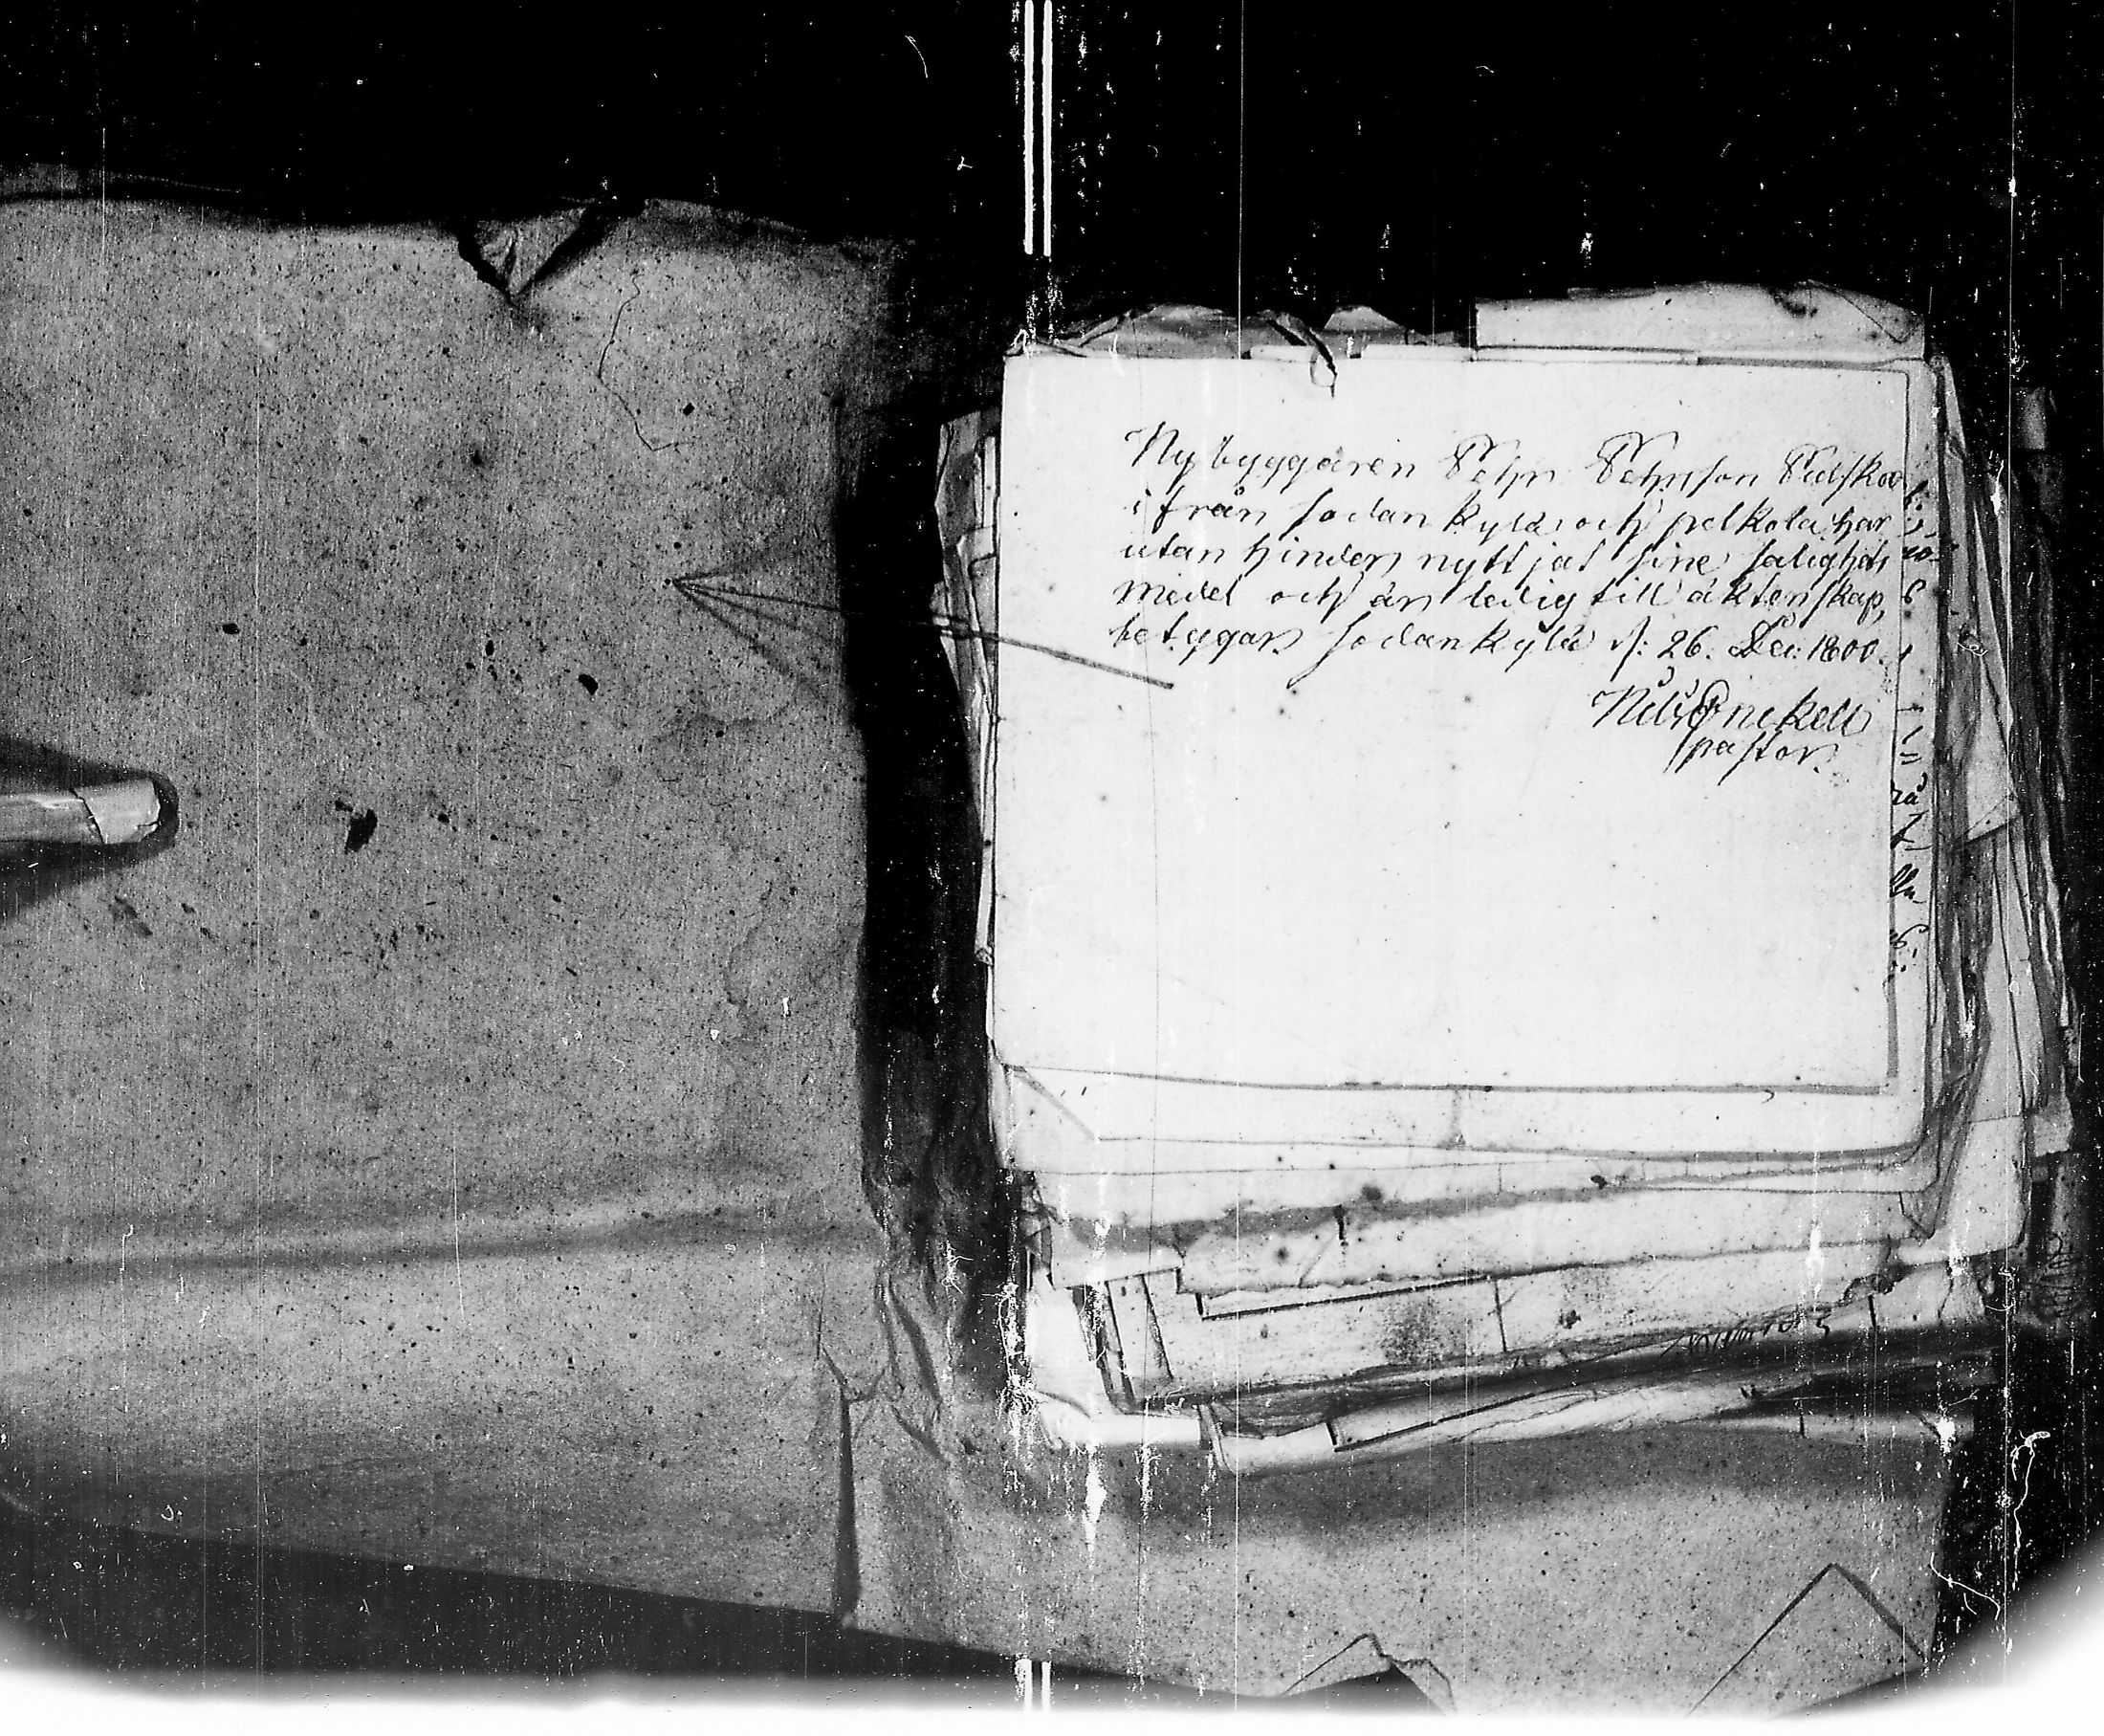 Nybyggaren Pehr Pehrsson
ifrån Sodankylä och pelkola har
utan hinder nyttjat sine salighets
medel och är ledig till äktenskap,
betygar Sodankylä d: 26. Dec: 1800.
Nils Fnckell
pastor.